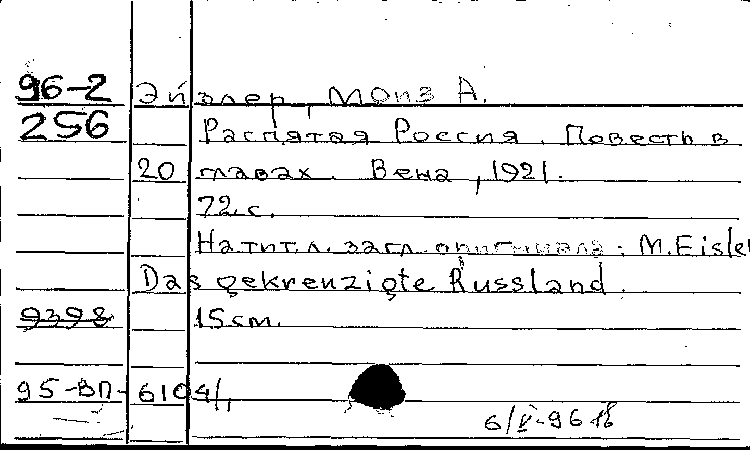 96-2 Эйзлер, Моиз А.
256 Распятая Россия. Повесть в
20 главах. Вена, 1921.
72 с.
На тит. л. загл. оригинала: M. Eisler
Das gekreuzigte Russland.
9398 15 см.
95-ВП-6104/1
6/V-96